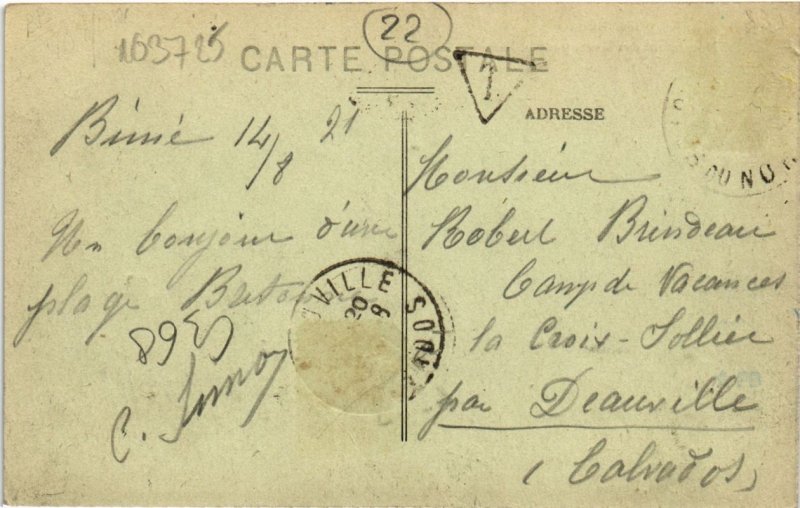 22
103725
CARTE POSTALE
T
ADRESSE
Binic 14/8 21
Un bonjour d'une
plage Bretonne
8635
C. Simon
VILLE SOU
20
9
SOU NOR
Monsieur
Robert Brindeau
Camp de Vacances
la Croix-Sollier
par Deauville
(Calvados)